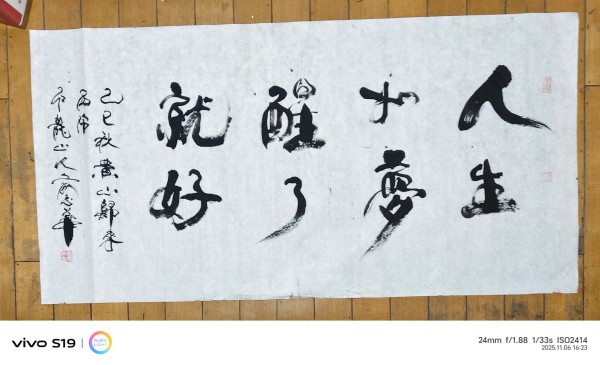 人生
如夢
醒了
就好
乙巳秋黄山歸來
龍山人志華
vivo S19
AURA LIGHT
24mm f/1.88 1/33s ISO2414
2025.11.06 16:23